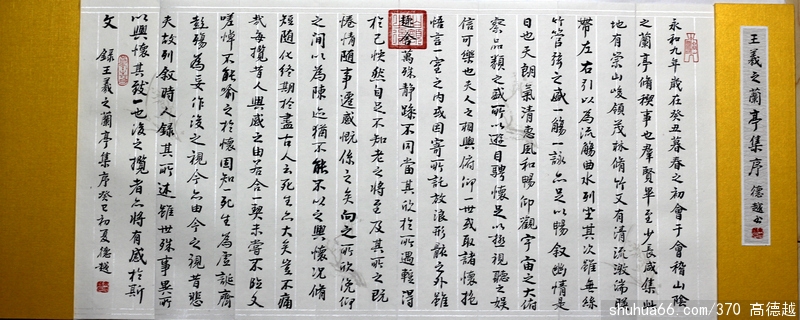 王羲之蘭亭集序 德越书
永和九年歲在癸丑暮春之初會于會稽山陰
之蘭亭脩禊事也群賢畢至少長咸集此
地有崇山峻領茂林脩竹又有清流激湍暎
帶左右引以為流觴曲水列坐其次雖無絲
竹管弦之盛一觴一詠亦足以暢敘幽情是
日也天朗氣清惠風和暢仰觀宇宙之大俯
察品類之盛所以遊目騁懷足以極視聽之娛
信可樂也夫人之相與俯仰一世或取諸懷抱
悟言一室之內或因寄所託放浪形骸之外雖
趣舍萬殊靜躁不同當其欣於所遇輕得
於己怏然自足不知老之將至及其所之既
惓情隨事遷感慨係之矣向之所欣俛仰
之間以為陳迹猶不能不以之興懷況脩
短隨化終期於盡古人云死生亦大矣豈不痛
哉每攬昔人興感之由若合一契未嘗不臨文
嗟悼不能喻之於懷固知一死生為虛誕齊
彭殤為妄作後之視今亦由今之視昔悲
夫故列敘時人錄其所述雖世殊事異所
以興懷其致一也後之攬者亦將有感於斯
文 錄王羲之蘭亭集序癸巳初夏德越
shuhua66.com/370 高德越